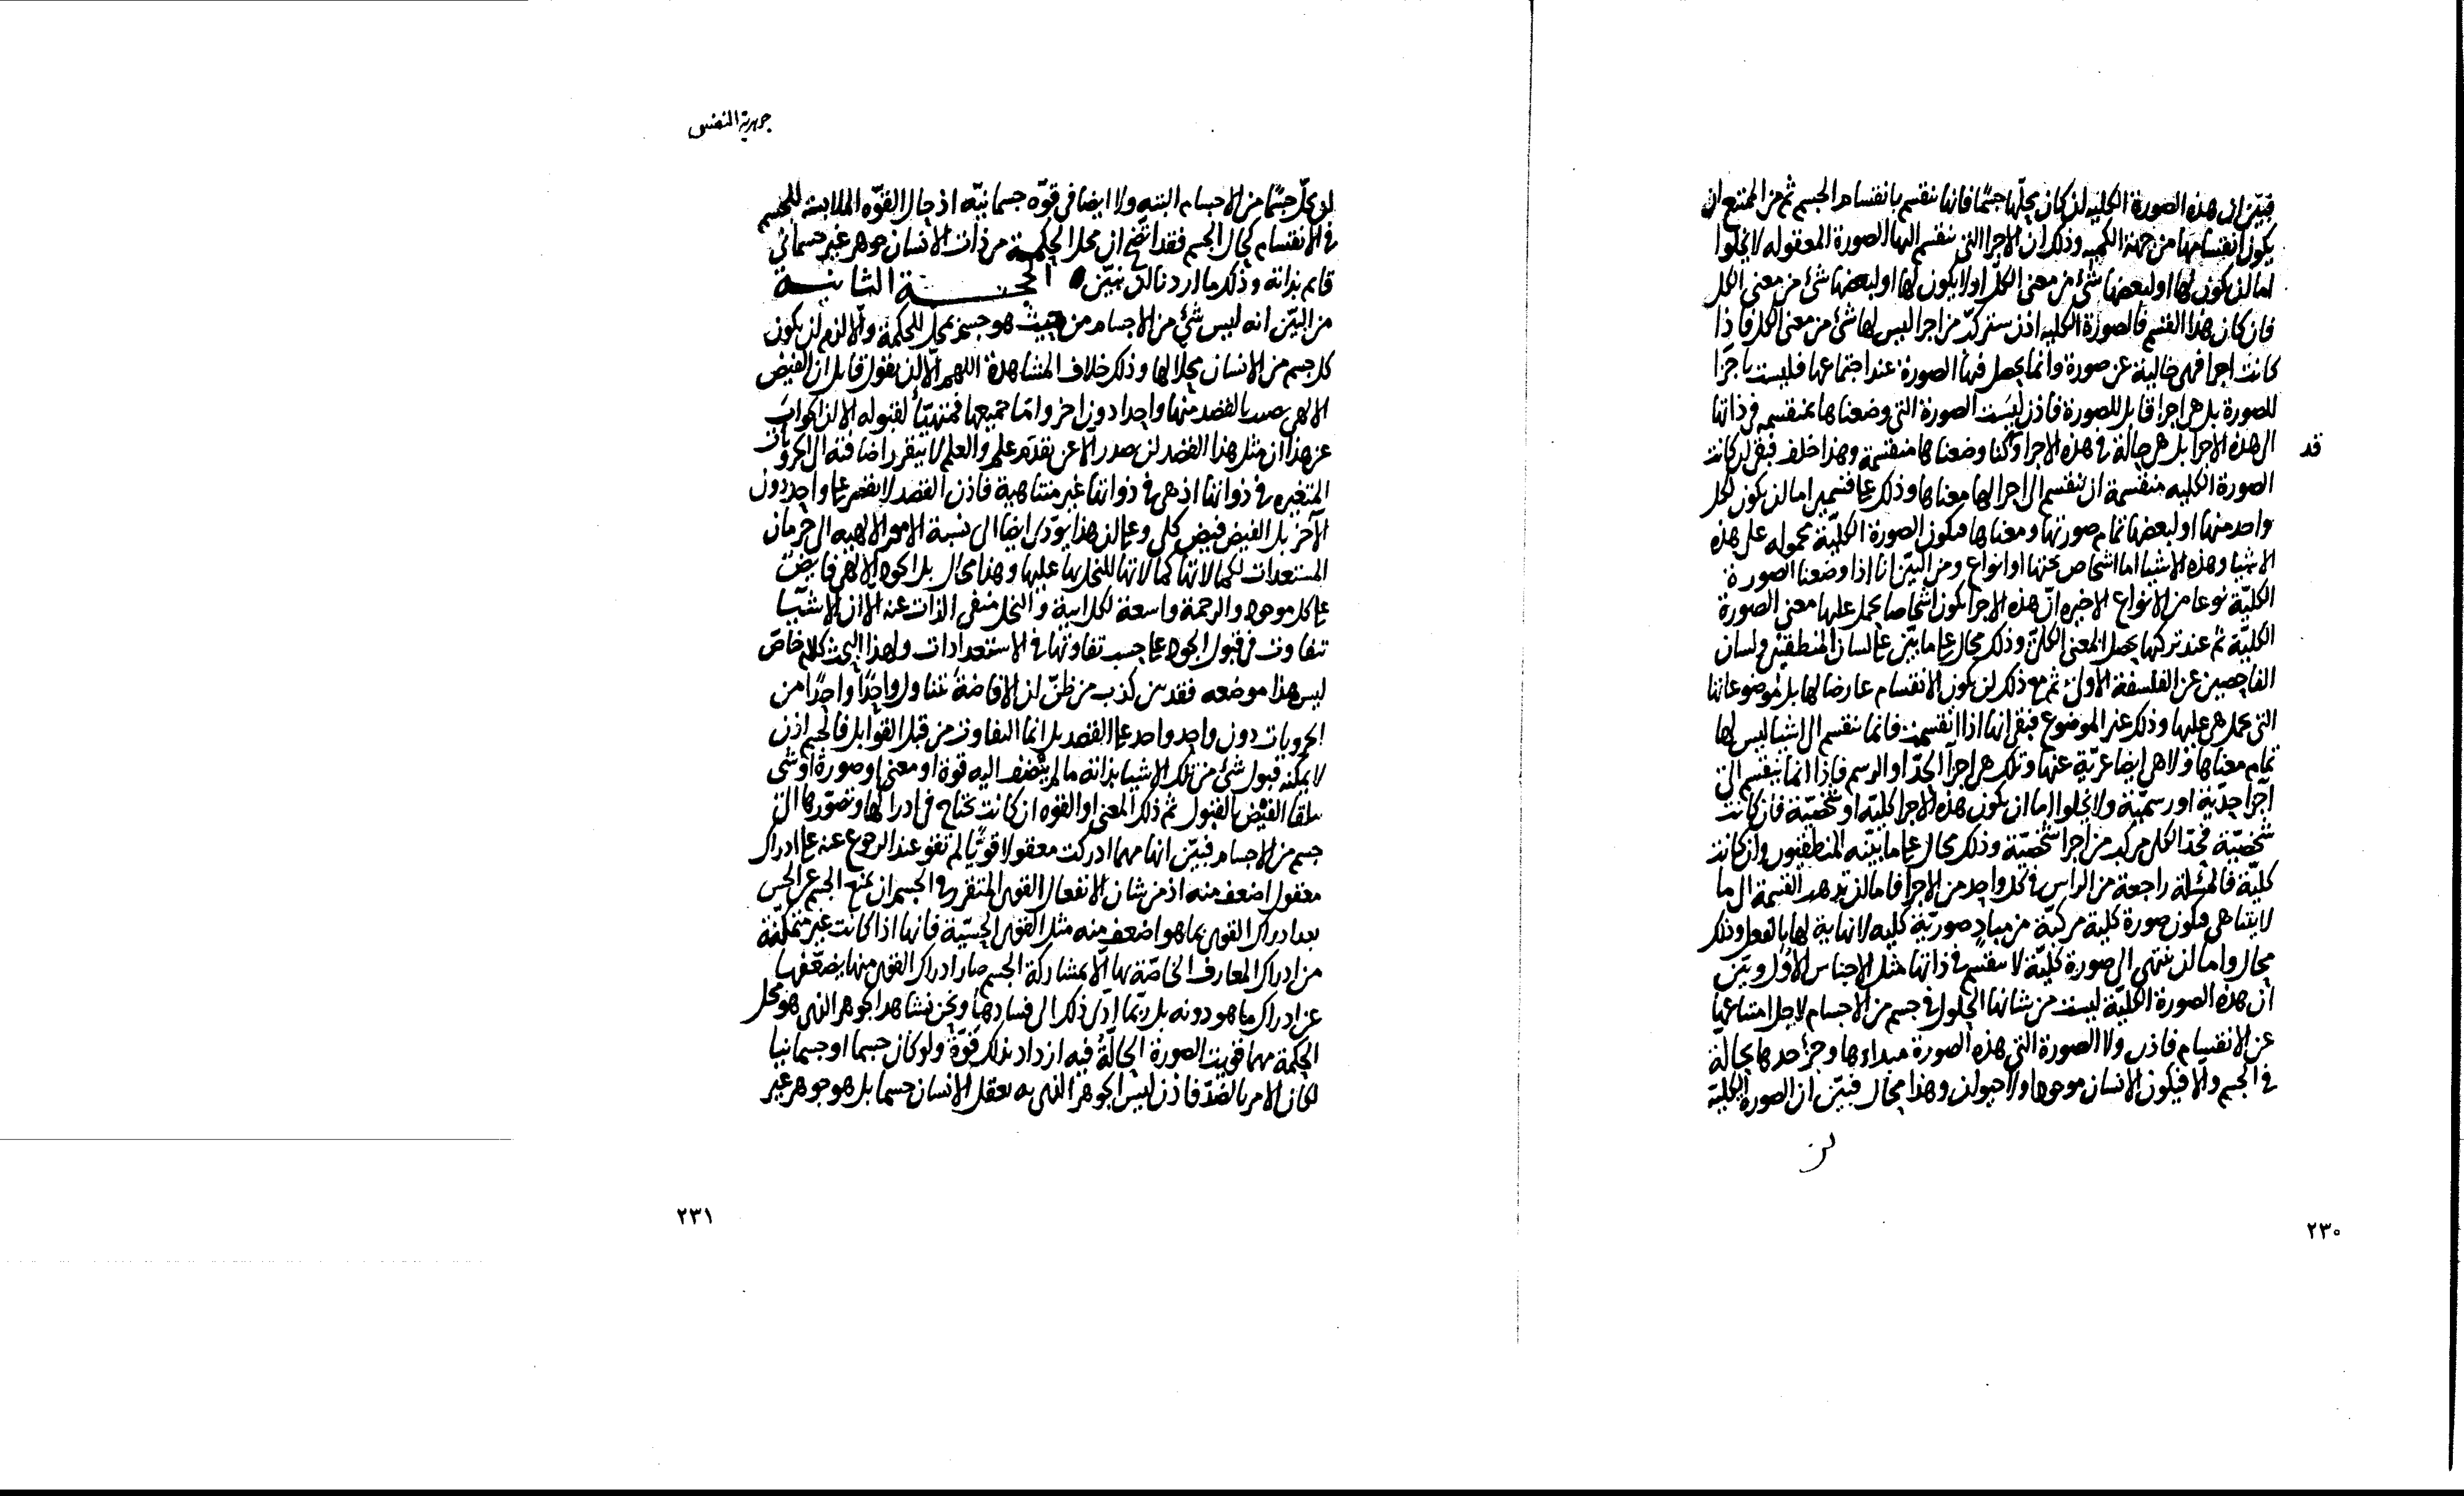 فبيّن ان هذه الصورة الكليه لن كان محلّها جسمًا فانها تنقسم بانقسام الجسم ثم من الممتنع ان
يكون انقسامها من جهة الكميه وذلك ان الاجزا التى تنقسم اليها الصورة المعقوله لا يخلوا
اما لن يكون لها او لبعضها شئ من معنى الكل او لا يكون لها او لبعضها شئ من معنى الكل
فان كان هذا القسم فالصورة الكليه اذن ستركّب من اجزا ليس لها شئ من معنى الكل فاذا
كانت اجزا فهى خالية عن صورة وانما يحصل فيها الصورة عند اجتماعها فليست باجزا
للصورة بل هى اجزا قابل للصورة فاذن ليست الصورة التى وضعناها بمنقسم فى ذاتها
الى هذه الاجزا بل هى حالّة فى هذه الاجزا وكنا وضعناها منقسمة وهذا خلف فبقى لن كانت
قد
الصورة الكليه منقسمة ان تنقسم الى اجزا لها معناها وذلك على قسمين اما لن يكون لكل
واحد منها او لبعضها تمام صورتها ومعناها فيكون الصورة الكليّة محموله على هذه
الاشيا وهذه الاشيا اما اشخاص تحتها او انواع ومن البيّن انا اذا وضعنا الصورة
الكليّة نوعا من الانواع الاخيره انّ هذه الاجزا يكون اشخاصا يحمل عليها معنى الصورة
الكليّة ثم عند تركبها يحصل المعنى الكلىّ وذلك محال على ما بيّن على لسان المنطقيين ولسان
الفاحصين عن الفلسفة الاولى ثم مع ذلك لن يكون الانقسام عارضا لها بل لموضوعاتها
التى يحمل هى عليها وذلك غير الموضوع فبقى انها اذا انقسمت فانما تنقسم الى اشيا ليس لها
تمام معناها ولا هى ايضا عريّة عنها وتلك هى اجزآ الحدّ او الرسم فاذا انما ينقسم الى
اجزا حدّية او رسميّة ولا يخلوا اما ان يكون هذه الاجزا كليّه او شخصيّه فان كانت
شخصيّة فحدّ الكل مركب من اجزا شخصيّة وذلك محال على ما بيّنه المنطقيون وان كانت
كليّة فالمسئلة راجعة من الراس فى كل واحد من الاجزا فاما لن يذهب القسمة الى ما
لا يتناهى فيكون صورة كلية مركبّة من مبادٍ صوريّة كليه لا نهاية لها بالفعل وذلك
محال واما لن تنتهى الى صورة كليّة لا تنقسم فى ذاتها مثل الاجناس الاُوَل وبيّن
ان هذه الصورة الكليّة ليست من شانها الحلول فى جسم من الاجسام لاجل امتناعها
عن الانقسام فاذن ولا الصورة التى هذه الصورة مبداءها وجزأ حدها بحالة
فى الجسم والا فيكون الانسان موجودا ولا حيولن وهذا محال فبيّن ان الصورة الكليّة
لن
٢٣٠
جوهرية النفس
لن يحلّ جسمًا من الاجسام البته ولا ايضا فى قوّه جسمانيّه اذ حال القوّه الملابسه للجسم
فى الانقسام كحال الجسم فقد اتضح ان محل الحكمة من ذات الانسان جوهر غير جسمانى
قايم بذاته وذلك ما اردنا لن نبيّن الحجـــة الثانيـــة
من البيّن انه ليس شئ من الاجسام من حيث هو جسم بمحل للحكمة والّا لزم لن يكون
كل جسم من الانسان محلا لها وذلك خلاف المشاهدة اللهم الّا لن يقول قايل ان الفيض
الالهى صدر بالقصد منها واحدا دون اخر واما جميعها فمتهيّأ لقبوله الا لن الجواب
عن هذا ان مثل هذا القصد لن صدر الا عن تقدّم علم والعلم لا يتقرر اضافته الى الجزويات
المتغيره فى ذواتها اذ هى فى ذواتها غير متناهية فاذن القصد لا يقصر على واحد دون
الآخر بل الفيض فيض كلى وعلى لن هذا يودى ايضا الى نسبة الامور الالهيه الى حرمان
المستعدات لكمالاتها كمالاتها للبخل بها عليها وهذا محال بل الجود الالهى فايض
على كل موجود والرحمة واسعة لكل انية والبخل منفى الذات عنه الا ان الاشيّا
تتفاوت فى قبول الجود على حسب تفاوتها فى الاستعدادات ولهذا البحث كلام خاصّ
ليس هذا موضعه فقد بين كذب من ظنّ لن الافاضة تتناول واحدًا واحدًا من
الجزويات دون واحد واحد على القصد بل انما التفاوت من قبل القوابل فالجسم اذن
لا يمكنه قبول شئ من تلك الاشيا بذاته ما لم يتضف اليه قوة او معنى او صورة او شئ
يتلقا الفيض بالقبول ثم ذلك المعنى او القوه ان كانت تحتاج فى ادراكها وتصوّرها الى
جسم من الاجسام فبيّن انها مهما ادركت معقولا قويًّا لم تقو عند الرجوع عنه على ادراك
معقول اضعف منه اذ من شان الانفعال القوى المتقرر فى الجسم ان يمنع الجسم عن الحس
بعد ادراك القوى بما هو اضعف منه مثل القوى الحسيّة فانها اذا كانت غير متمكنة
من ادراك المعارف الخاصّة بها الّا بمشاركة الجسم صار ادراك القوى منها يضعّفها
عن ادراك ما هو دونه بل ربّما ادّى ذلك الى فسادها ونحن نشاهد الجوهر الذى هو محل
الحكمة مهما قويت الصورة الحالّة فيه ازداد بذلك قوّة ولو كان جسما او جسمانيا
لكان الامر بالضدّ فاذن ليس الجوهر الذى به يعقل الانسان جسما بل هو جوهر غير
٢٣١